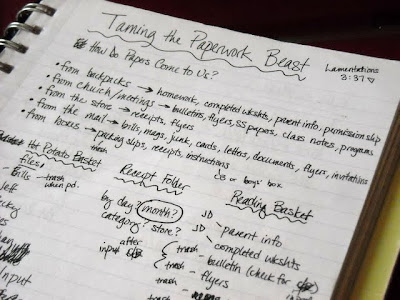 Taming the Paperwork Beast
Lamentations
3:37
How Do Papers Come to Us?
• from backpacks → homework, completed wkshts, parent info, permission slip
• from church/meetings → bulletins, flyers, SS papers, class notes, programs
• from the store → receipts, flyers
• from the mail → bills, mags, junk, cards, letters, documents, flyers, invitations
• from boxes → packing slips, receipts, instructions
trash
or boys' box
Hot Potato Basket
files
Bills — trash when pd.
Jeff
Input
Receipt Folder
by day? month?
category? store?
after
input
Reading Basket
JD parent info
JD completed wkshts
trash bulletin (check for
trash flyers
trash